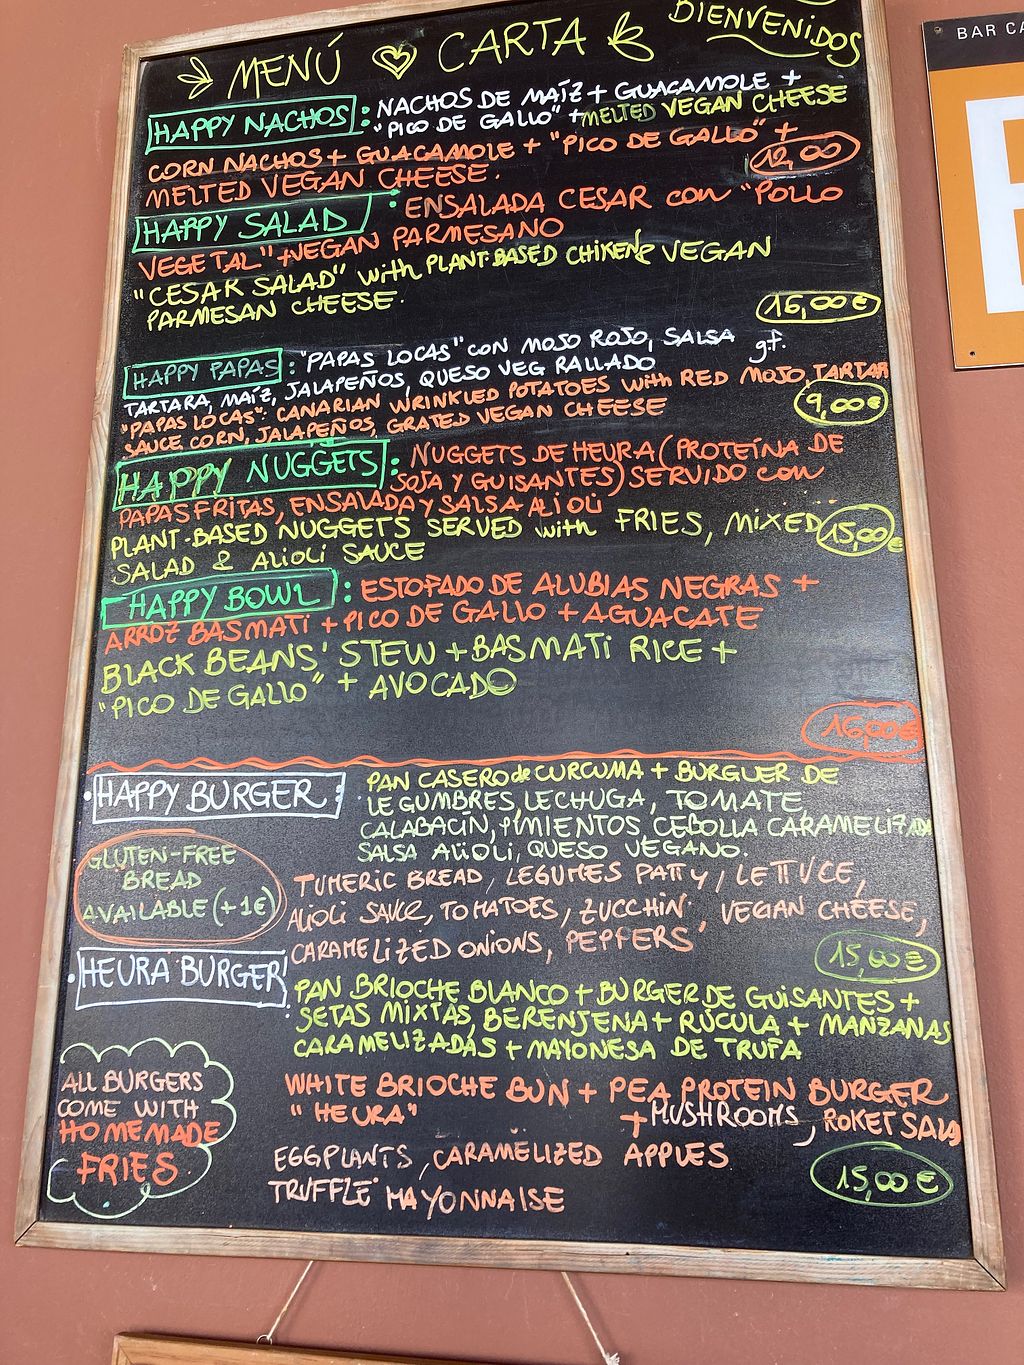 BIENVENIDOS
MENÚ CARTA
HAPPY NACHOS : NACHOS DE MAÍZ + GUACAMOLE +
"PICO DE GALLO" + MELTED VEGAN CHEESE
CORN NACHOS + GUACAMOLE + "PICO DE GALLO" +
MELTED VEGAN CHEESE.
12,00
HAPPY SALAD : ENSALADA CESAR CON "POLLO
VEGETAL" + VEGAN PARMESANO
"CESAR SALAD" with PLANT-BASED CHIKEN & VEGAN
PARMESAN CHEESE.
16,00€
HAPPY PAPAS : "PAPAS LOCAS" CON MOJO ROJO, SALSA g.f.
TARTARA, MAÍZ, JALAPEÑOS, QUESO VEG RALLADO
"PAPAS LOCAS": CANARIAN WRINKLED POTATOES with RED MOJO, TARTAR
SAUCE CORN, JALAPEÑOS, GRATED VEGAN CHEESE
9,00€
HAPPY NUGGETS : NUGGETS DE HEURA (PROTEÍNA DE
SOJA Y GUISANTES) SERVIDO CON
PAPAS FRITAS, ENSALADA Y SALSA ALIOLI
PLANT-BASED NUGGETS SERVED with FRIES, MIXED
SALAD & ALIOLI SAUCE
15,00€
HAPPY BOWL : ESTOFADO DE ALUBIAS NEGRAS +
ARROZ BASMATI + PICO DE GALLO + AGUACATE
BLACK BEANS' STEW + BASMATI RICE +
"PICO DE GALLO" + AVOCADO
16,00€
HAPPY BURGER : PAN CASERO de CURCUMA + BURGUER DE
LEGUMBRES, LECHUGA, TOMATE,
CALABACÍN, PIMIENTOS, CEBOLLA CARAMELIZADA
SALSA ALIOLI, QUESO VEGANO.
GLUTEN-FREE
BREAD
AVAILABLE (+1€)
TUMERIC BREAD, LEGUMES PATTY, LETTUCE,
ALIOLI SAUCE, TOMATOES, ZUCCHIN', VEGAN CHEESE,
CARAMELIZED ONIONS, PEPPERS
15,00€
HEURA BURGER : PAN BRIOCHE BLANCO + BURGER DE GUISANTES +
SETAS MIXTAS, BERENJENA + RÚCULA + MANZANAS
CARAMELIZADAS + MAYONESA DE TRUFA
ALL BURGERS
COME WITH
HOMEMADE
FRIES
WHITE BRIOCHE BUN + PEA PROTEIN BURGER
"HEURA" + MUSHROOMS, ROKET SALAD
EGGPLANTS, CARAMELIZED APPLES
TRUFFLE MAYONNAISE
15,00€
BAR CA